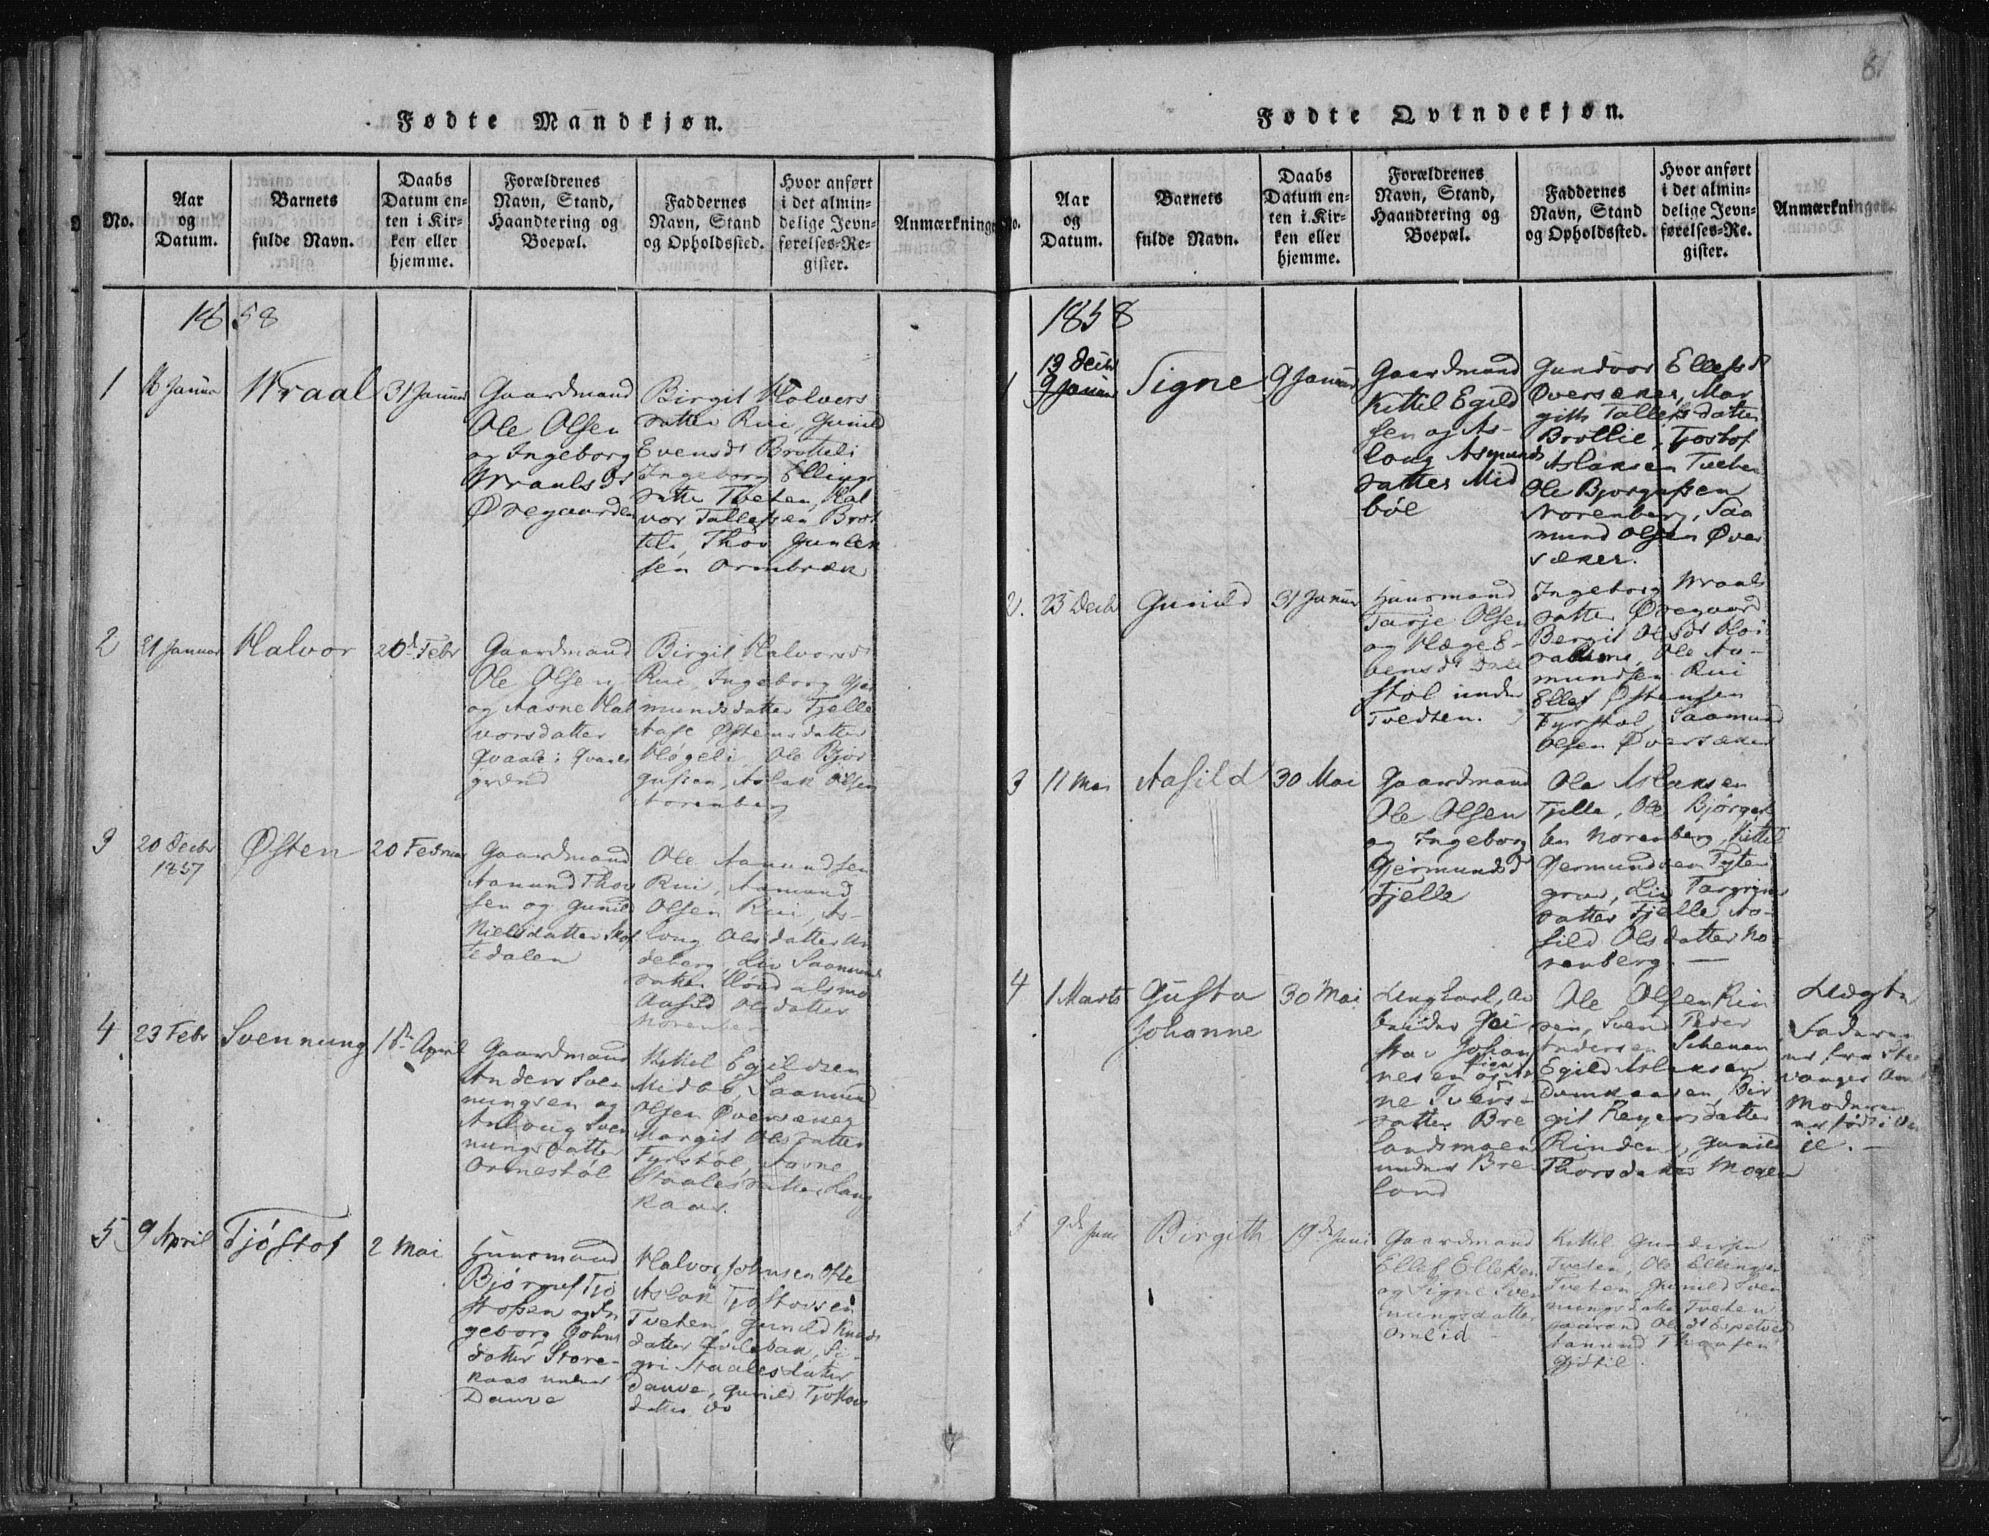 Fødte Mandkjøn.
No.
Aar
og
Datum.
Barnets
fulde Navn.
Daabs
Datum en-
ten i Kir-
ken eller
hjemme.
Forældrenes
Navn, Stand,
Haandtering og
Boepæl.
Faddernes
Navn, Stand
og Opholdssted.
Hvor anført
i det almin-
delige Jevn-
førelses-Re-
gister.
Anmærkninger
1858
1
16 Januar
Wraal
31 Januar
Gaardmand
Ole Olsen
og Ingeborg
Wraalsdr
Øvegaarden
Birgit Halvors
datter Rui, Gunild
Evensdr Brotteli
Ingeborg Ellings
datter Tveten, Hal
vor Tallefsen Brot
teli, Thov Gunlek
sen Ormbræk
2
21 Januar
Halvor
20d Febr
Gaardmand
Ole Olsen
og Aasne Hal
vorsdatter
Qvaale i
grænd
Birgit Halvorsdr
Rui, Ingeborg Gjer
mundsdatter Fjelle
Aase Østensdatter
Høgeli, Ole Bjør
gufsen, Aslak Olsen
Norenberg
3
20 Decbr
1857
Østen
20 Februar
Gaardmand
Aanund Thov
sen og Gunild
Nielsdatter
tedalen
Ole Aanundsen
Rui, Aamund
Olsen Rui, As-
loug Olsdatter
deberg, Liv Saamunds
datter
Aasild Olsdatter
Norenberg
4
23 Febr
Svennung
1ste April
Gaardmand
Anders Sven
nungsen og
Asloug Sven
nungsdatter
Ormestøl
Kittil Egildsen
Midbø, Saamund
Olsen Øversaker
Margit Olsdatter
Fyrstøl, Aasne
Staalesdatter Lang
kaas.
5
9 April
Tjøstof
2 Mai
Huusmand
Bjørguf Tjø
stofsen og In
geborg Johns
datter Store-
kaas under
Dauve
Halvor Johnsen Ofte
Aslak Tjøstovsen
Tveten, Gunild Knuds
datter Qvilebæk, Si-
gri Staalesdatter
Dauve, Gunild Tjøstovs
datter do
81
Fødte Qvindekjøn.
No.
Aar
og
Datum.
Barnets
fulde Navn.
Daabs
Datum en-
ten i Kir-
ken eller
hjemme.
Forældrenes
Navn, Stand,
Haandtering og
Boepæl.
Faddernes
Navn, Stand
og Opholdssted.
Hvor anført
i det almin-
delige Jevn-
førelses-Re-
gister.
Anmærkninger.
1858
1
13 Decbr
9 Januar
Signe
9 Januar
Gaardmand
Kittil Egild
sen og As-
loug Asmunds
datter Mid
bøe
Gundvor Ellefsdr
Øversaker, Mar
gith Tallefsdatter
Brotlie, Tjostof
Aslaksen Tveten
Ole Bjorgufsen
Norenberg, Saa
mund Olsen Øver
saker.
2.
23 Decbr
Gunild
31 Januar
Huusmand
Tarje Olsen
og Hæge E-
vensdr Dale
støl under
Tvedten.
Ingeborg Wraals
datter Øvegaard
Bergit Olsdr Høi
dalsmo, Ole Aa-
mundsen Rui
Ellef Østensen
Fyrstøl, Saamund
Olsen Øversaker
3
11 Mai
Aasild
30 Mai
Gaardmand
Ole Olsen
og Ingeborg
Gjermundsdr
Fjelle
Ole Aslaksen
Fjelle, Ole Bjørguf
sen Norenberg, Kittil
Gjermundsen Fyten
grav, Liv Targrims
datter Fjelle, Aa-
sild Olsdatter No-
renberg. —
4
1 Marts
Gusta
Johanne
30 Mai
Ungkarl, Ar
beider
stav Johan
nesen og An
ne Ivers-
datter Bre
landsmoen
under Bre
land
Ole Olsen Rin
den, Svend Peder
Andersen
Egild Aslaksen
Bir
git Reyersdatter
Rinden, Gunild
Thorsdatter Mogen
Uægte
Faderen
er fra Sta
vanger Amt
Moderen
er født i
ie. —
5
9de Juni
Birgith
19de Juni
Gaardmand
Ellef Ellefsen
og Signe Sven
nungsdatter
Omlid
Kittil Gundersen
Tveten, Ole Ellingsen
Tveten, Gunild Sven
nungsdatter Tveten
Olsdr Espetveit
Aanund Thovsen